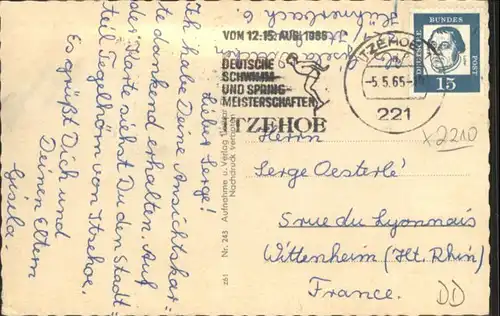 Lieber Serge!
Ich habe Deine Ansichtskar=
te dankend erhalten. Auf
der Karte siehst Du den Stadt=
teil Tegelhörn von Itzehoe.
Es grüßt Dich und
Deinen Eltern
Gisela.
z61 Nr. 243 Aufnahme u. Verlag
Nachdruck verboten
VON 12.-15. AUG. 1965
DEUTSCHE
SCHWIMM-
UND SPRING-
MEISTERSCHAFTEN
ITZEHOE
ITZEHOE
-5.5.65-
221
DEUTSCHE BUNDESPOST
15
x2210
Herrn
Serge Oesterlé
5 rue du Lyonnais
Wittenheim (Ht. Rhin)
France.
DD